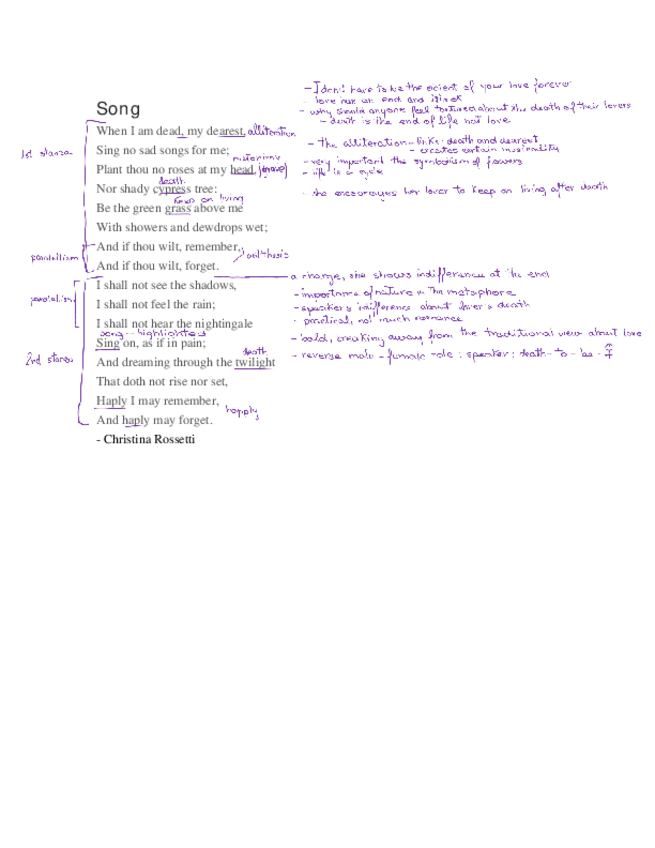 Song
- I don't have to be the of your love forever
- love has an end and it is ok
- why should anyone feel tortured about the death of their lovers
- death is the end of life not love
When I am dead, my dearest, alliteration
- The alliteration links death and dearest
1st stanza
Sing no sad songs for me;
- creates certain musicality
metonymy
Plant thou no roses at my head, (grave)
- very important the symbolism of flowers
- life is a cycle
death
Nor shady cypress tree:
- she encourages her lover to keep on living after death
keep on living
Be the green grass above me
With showers and dewdrops wet;
And if thou wilt, remember,
parallelism
antithesis
And if thou wilt, forget.
a change, she shows indifference at the end
I shall not see the shadows,
- importance of nature in the metaphore
parallelism
I shall not feel the rain;
- speaker's indifference about lover's death
I shall not hear the nightingale
- practical, not much romance
song - highlighted
Sing on, as if in pain;
- bold, breaking away from the traditional view about love
death
2nd stanza
And dreaming through the twilight
- reverse male - female role : speaker : death - to - be -
That doth not rise nor set,
Haply I may remember,
happily
And haply may forget.
- Christina Rossetti